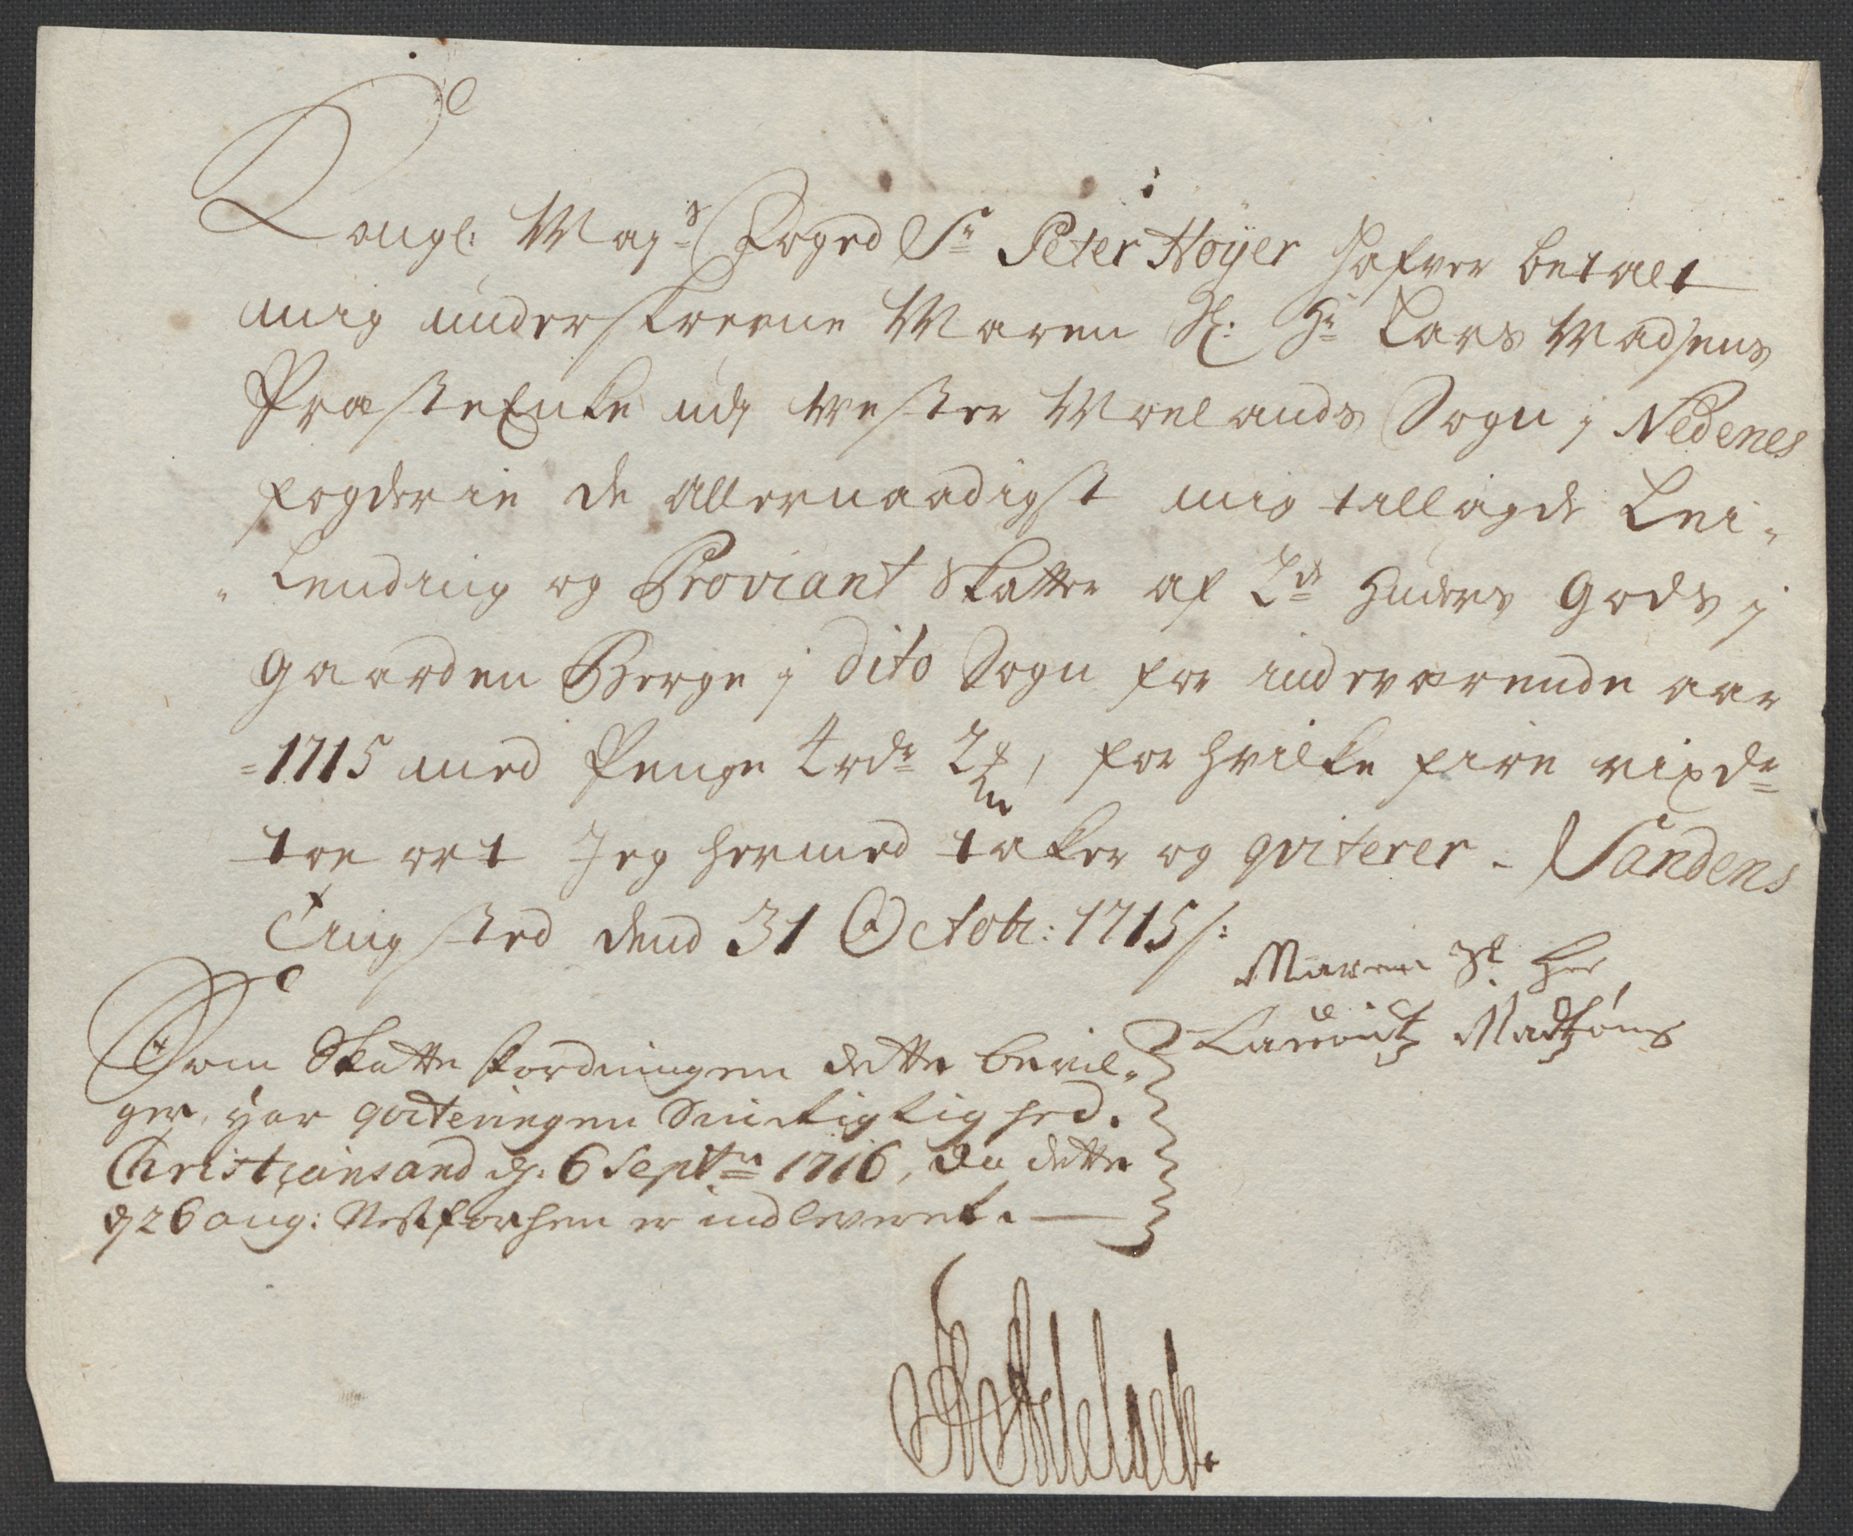 Kongl: Maÿ:ts Foged Sr Peter Höÿer hafver betalt
mig underskrevne Maren Sl: Hr Lars Madsens
PræsteEnke udj Wester Moelands Sogn j Nedenes
fogderie de Allernaadigst mig tillagde Lei-
-lending og Proviant Skatter af 2de Huders Gods j
gaarden Berge j dito Sogn for indeværende aar
1715 med Penge 4 rdr 2 , for hvilke fire rixdr
toe ort Jeg hermed taker og qviterer - Sandens
Tingsted dend 31 Octobr: 1715/:
Maren Sl Her
Lauridtz Madtzöns
Som Skatte fordningen dette bevil-
ger, har qviteringen Sin Rigtighed.
Christiansand d: 6 Septr 1716, da dette
d 26 aug: Nestforhen er indleveret.